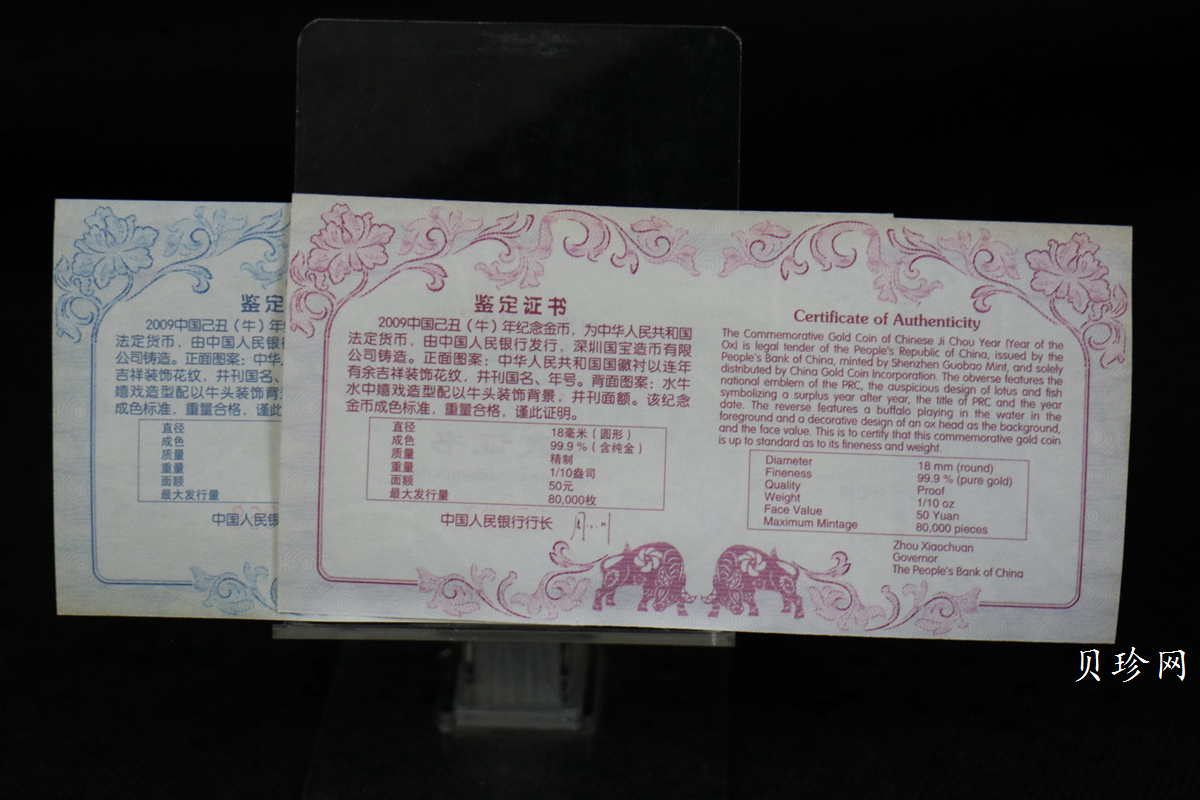 鉴定
2009中国己丑（牛）年
法定货币，由中国人民银行
公司铸造。正面图案：中华人
吉祥装饰花纹，并刊国名、
嬉戏造型配以牛头装饰背景
成色标准，重量合格，谨此
直径
成色
质量
重量
面额
最大发行量
中国人民银
鉴定证书
2009中国己丑（牛）年纪念金币，为中华人民共和国
法定货币，由中国人民银行发行，深圳国宝造币有限
公司铸造。正面图案：中华人民共和国国徽衬以连年
有余吉祥装饰花纹，并刊国名、年号。背面图案：水牛
水中嬉戏造型配以牛头装饰背景，并刊面额。该纪念
金币成色标准，重量合格，谨此证明。
直径 18毫米（圆形）
成色 99.9%（含纯金）
质量 精制
重量 1/10盎司
面额 50元
最大发行量 80,000枚
中国人民银行行长
Certificate of Authenticity
The Commemorative Gold Coin of Chinese Ji Chou Year (Year of the
Ox) is legal tender of the People's Republic of China, issued by the
People's Bank of China, minted by Shenzhen Guobao Mint, and solely
distributed by China Gold Coin Incorporation. The obverse features the
national emblem of the PRC, the auspicious design of lotus and fish
symbolizing a surplus year after year, the title of PRC and the year
date. The reverse features a buffalo playing in the water in the
foreground and a decorative design of an ox head as the background,
and the face value. This is to certify that this commemorative gold coin
is up to standard as to its fineness and weight.
Diameter 18 mm (round)
Fineness 99.9 % (pure gold)
Quality Proof
Weight 1/10 oz
Face Value 50 Yuan
Maximum Mintage 80,000 pieces
Zhou Xiaochuan
Governor
The People's Bank of China
贝珍网